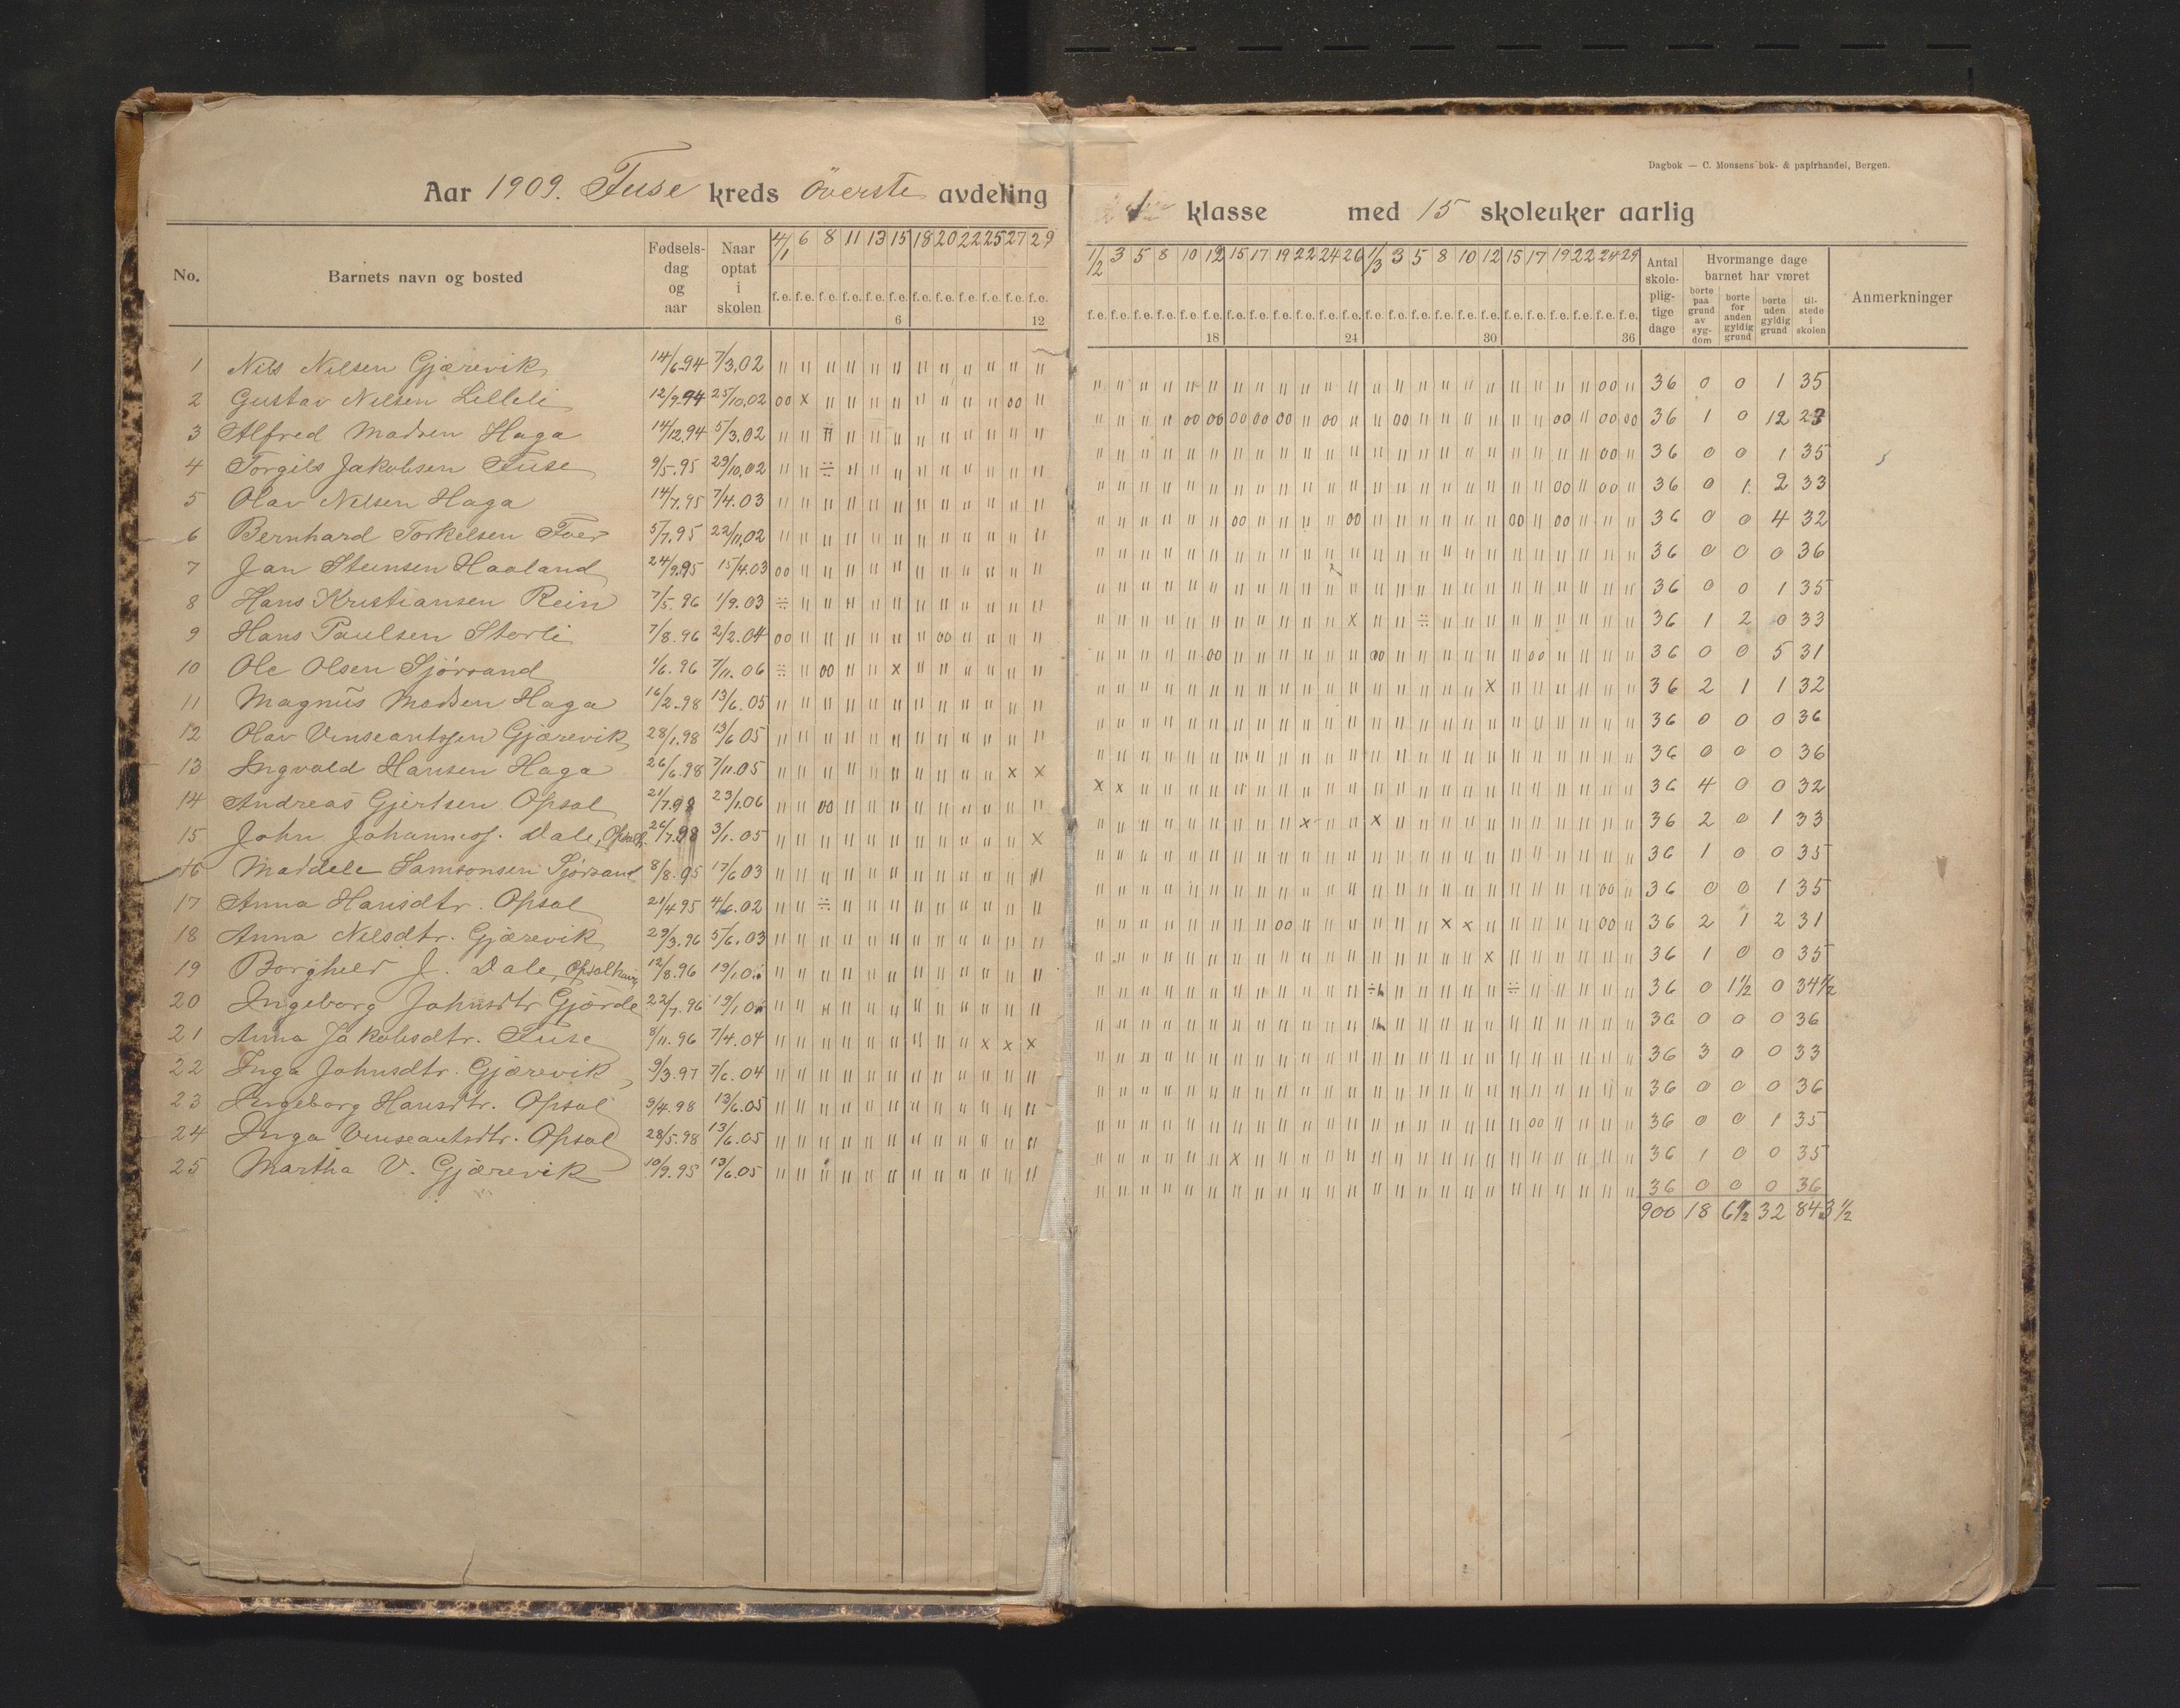 Dagbok — C. Monsens bok- & papirhandel, Bergen.
Aar 1909. Fuse kreds överste avdeling
klasse med 15 skoleuker aarlig
No. Barnets navn og bosted Fødsels-dag og aar Naar optat i skolen 4/1 6 8 11 13 15 18 20 22 25 27 29
1/2 3 5 8 10 12 15 17 19 22 24 26 1/3 3 5 8 10 12 15 17 19 22 24 29 Antal skole-plig-tige dage Hvormange dage barnet har været Anmerkninger
borte paa grund av syg-dom borte for anden gyldig grund borte uden gyldig grund til-stede i skolen
f.e. f.e. f.e. f.e. f.e. f.e. f.e. f.e. f.e. f.e. f.e. f.e.
f.e. f.e. f.e. f.e. f.e. f.e. f.e. f.e. f.e. f.e. f.e. f.e. f.e. f.e. f.e. f.e. f.e. f.e. f.e. f.e. f.e. f.e. f.e. f.e.
6 12 18 24 30 36
1 Nils Nilsen Gjærevik 14/6.94 7/3.02 36 0 0 1 35
2 Gustav Nilsen Lilleli 12/9.94 25/10.02 36 1 0 12 23
3 Alfred Madsen Haga 14/12.94 5/3.02 36 0 0 1 35
4 Torgils Jakobsen Fuse 9/5.95 29/10.02 36 0 1 2 33
5 Olav Nilsen Haga 14/7.95 7/4.03 36 0 0 4 32
6 Bernhard Torkelsen 5/7.95 22/11.02 36 0 0 0 36
7 Jan Steinsen Haaland 24/9.95 15/4.03 36 0 0 1 35
8 Hans Kristiansen Rein 7/5.96 1/9.03 36 1 2 0 33
9 Hans Paulsen Storli 7/8.96 2/2.04 36 0 0 5 31
10 Ole Olsen Sjörsand 1/6.96 7/11.06 36 2 1 1 32
11 Magnus Madsen Haga 16/2.98 13/6.05 36 0 0 0 36
12 Olav Vinseantssen Gjærevik 28/1.98 13/6.05 36 0 0 0 36
13 Ingvald Hansen Haga 26/6.98 7/11.05 36 4 0 0 32
14 Andreas Gjertsen Opsal 21/7.98 23/1.06 36 2 0 1 33
15 John Johanness. Dale, 26/7.98 3/1.05 36 1 0 0 35
16 Mardele Samsonsen Sjörsand 8/8.95 17/6.03 36 0 0 1 35
17 Anna Hansdtr. Opsal 21/4.95 4/6.02 36 2 1 2 31
18 Anna Nilsdtr. Gjærevik 29/3.96 5/6.03 36 1 0 0 35
19 Borghild J. Dale, 12/8.96 36 0 1½ 0 34½
20 Ingeborg Johnsdtr Gjörde 22/7.96 36 0 0 0 36
21 Anna Jakobsdtr. Fuse 8/11.96 7/4.04 36 3 0 0 33
22 Inga Johnsdtr. Gjærevik 9/3.97 7/6.04 36 0 0 0 36
23 Ingeborg Hansdtr. Opsal 9/4.98 13/6.05 36 0 0 1 35
24 Inga Vinseantsdtr. Opsal 28/5.98 13/6.05 36 1 0 0 35
25 Martha V. Gjærevik 10/9.95 13/6.05 36 0 0 0 36
900 18 6½ 32 843½